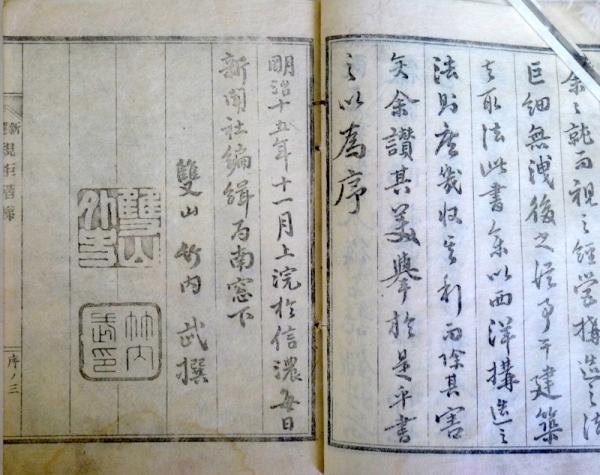 余之就而視之経營搆造之法
巨細無洩後之従事于建築
者取法此書參以西洋搆造之
法則庶幾収其利而除其害
矣余讃其美擧於是乎書
之以為序
明治十五年十一月上浣於信濃毎日
新聞社編緝局南窓下
雙山竹内武撰
雙山外史
竹内武印
序ノ三